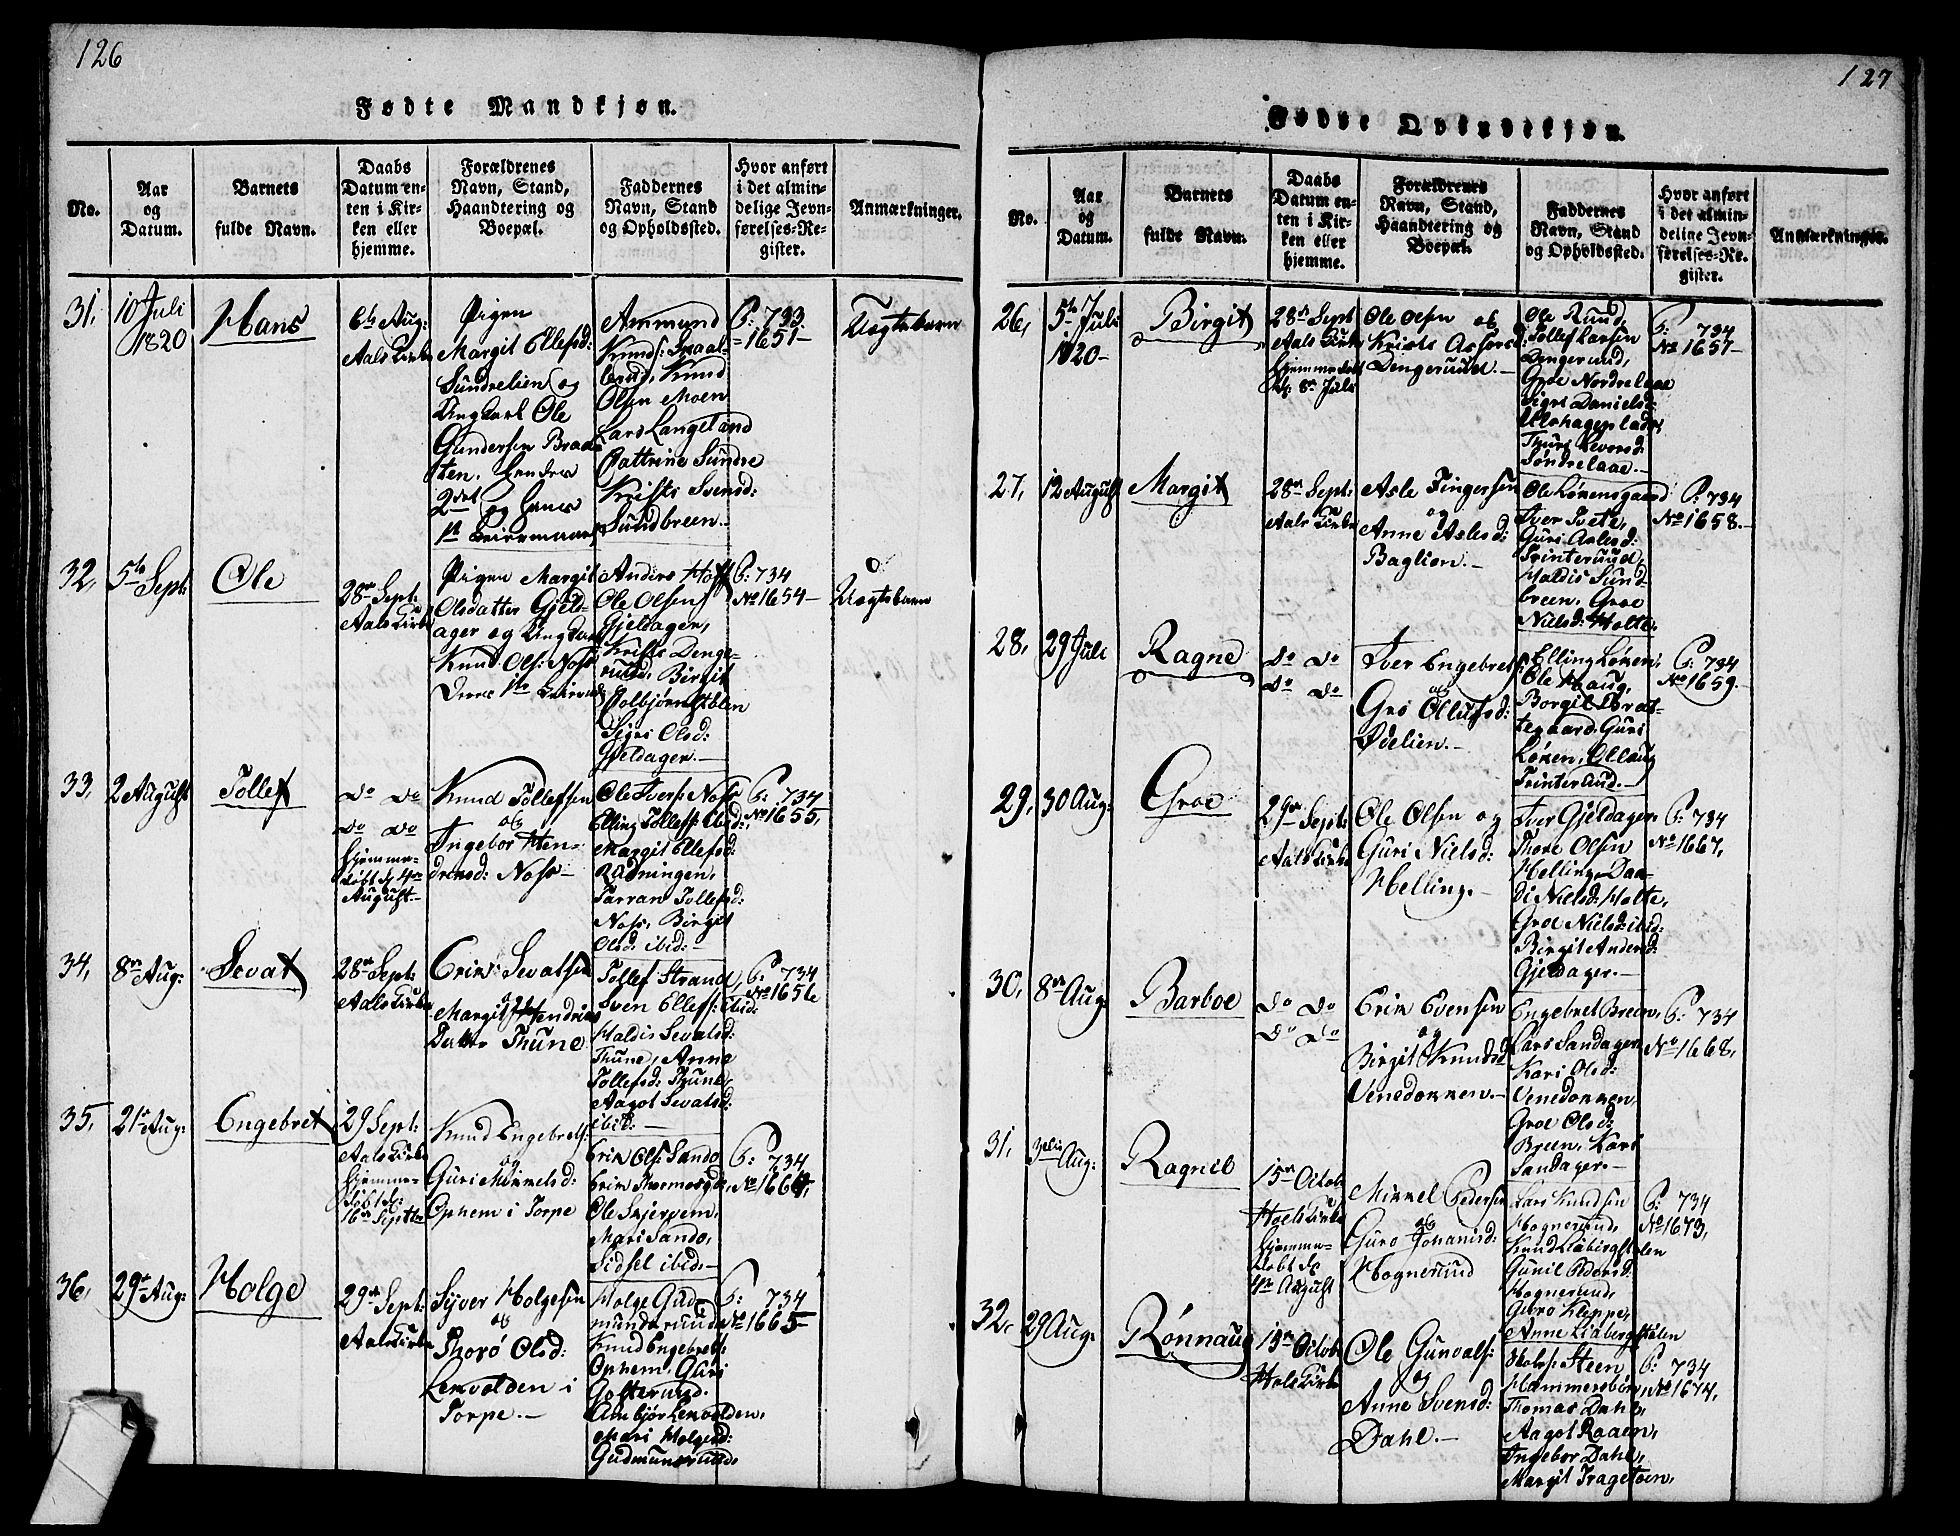 126
Fødte Mandkjøn.
No.
Aar
og
Datum.
Barnets
fulde Navn.
Daabs
Datum en-
ten i Kir-
ken eller
hjemme.
Forældrenes
Navn, Stand,
Haandtering og
Boepæl.
Faddernes
Navn, Stand
og Opholdssted.
Hvor anført
i det almin-
delige Jevn-
førelses-Re-
gister.
Anmærkninger.
31,
10 Juli
1820
Hans
6te Aug:
Aals Kirke
Pigen
Margit Ellefsd:
Sundrelien og
Ungkarl Ole
Gundersen Braa-
ten,
2det og hans
1te Leiermaal
Ammund
Knuds:
Knud
Olsen Moen
Lars Langeland
Cattrine Sundre
Kristi Svensd:
Sundbreen.-
P: 733
-1651-
Uægtebarn
32,
5te Sept:
Ole
28de Sept:
Aals Kirke
Pigen Margit
Olsdatter Gjeld-
ager og Ungkarl
Knud Ols: Noss
Deres 1te Leierm:
Anders Hoff
Ole Olsen
Gjeldager,
Kristi Denge-
rud, Birgit
Tolbjørn
Sigri Olsd:
Gjeldager.-
P: 734
No 1654-
Uægtebarn
33,
2 August
Tollef
do do
do do
Hjemme-
døbt d. 4de
August.-
Knud Tollefsen
og
Ingebor Hen-
driksd: Noss-
Ole Ivers: Noss
Elling Tollefs: ibid:
Margit Ellefsd:
Rudningen,
Jarran Tollefsd:
Noss, Birgit
Olsd: ibid:-
P: 734
No 1655,
34,
8de Aug:
Sevat
28de Sept:
Aals Kirke
Erik Sevatsen
og
Margit Hendriks
Datter Thune
Tollef Strand,
Sven Ellefs: ibid:
Haldis Sevatsd:
Thune, Anne
Tollefsd: Thune,
Aagot Sevatsd:
ibid:-
P: 734
No 1656
35,
21de Aug:
Engebret
29 Sept:
Aals Kirke
Hjemme-
døbt d:
16de Septbr
Knud Engebrets:
og
Guri Mikkelsd:
Ophem i Torpe
Erik Ols: Sando
Erik Thormosgd,
Ole Skjervem,
Mari Sando,
Sidsel ibid:-
P: 734
No 1664,
36,
29de Aug:
Holge
29de Sept:
Aals Kirke
Syver Holgesen
og
Thorø Olsd:
Lekvolden i
Torpe.-
Holge Gud-
mundsruud
Knud Engebrets:
Ophem, Guri
Golterud.
Ambjør Lekvolden,
Mari Holgesd:
Gudmunsruud.
P: 734
No 1665-
127
Fødte Qvindekjøn.
No.
Aar
og
Datum.
Barnets
fulde Navn.
Daabs
Datum en-
ten i Kir-
ken eller
hjemme.
Forældrenes
Navn, Stand,
Haandtering og
Boepæl.
Faddernes
Navn, Stand
og Opholdssted.
Hvor anført
i det almin-
delige Jevn-
førelses-Re-
gister.
Anmærkninger.
26,
5te Juli
1820-
Birgit
28de Sept
Aals Kirke
Hjemmedøbt
d. 8de Juli
Ole Olsen og
Kristi Asles:
Dengeruud.-
Ole Ruud,
Tollef Larsen
Dengerud,
Groe Nordrelaae
Sigri Danielsd:
Ulshagepladse
Thuri Seversd:
Søndrelaae.-
P: 734
No 1657-
27,
12 August
Margit
28de Sept:
Aals Kirke
Asle Fingersen
og
Anne Aslesd:
Baglien.-
Ole Løkensgaard
Iver Tveto,
Guri Aslesd:
Trinteruud,
Haldis Sund-
breen, Groe
Nielsd: Holte.
P: 734
No 1658.-
28,
29 Juli
Ragne
do do
do do
Iver Engebrets:
og
Gro Ollufsd:
Ødelien.-
Elling Løken,
Ole Haug,
Borgil Brat-
tegaard, Guri
Løken, Ollaug
Trinterud.-
P: 734
No 1659.-
29,
30 Aug:
Groe
29de Sept:
Aals Kirke
Ole Olsen og
Guri Nielsd:
Helling.-
Iver Gjeldager
Thore Olsen
Helling, Daa-
di Nielsd: Holte,
Groe Nielsd: ibid:
Birgit Andersd:
Gjeldager.-
P: 734
No 1667,
30,
8de Aug:
Barboe
do do
do do
Erik Evensen
og
Birgit Knudsd:
Venedokken.-
Engebret Breen,
Lars Sandager,
Kari Olsd:
Venedokken,
Groe Olsd:
Breen, Kari
Sandager.-
P: 734
No 1668,
31,
3die Aug:
Ragnil
15de Octob
Hols Kirke
Hjemme-
døbt d.
4de August
Mikkel Pedersen
og
Guro Johanisd:
Hognerud
Lars Knudsen
Hognerud,
Knud Liabergstølen
Gunil Pedersd:
Hognerud,
Guro Kleppe,
Anne Liabergstølen
P: 734
No 1673,
32,
29 Aug:
Rønnaug
15de Octob
Hols Kirke
Ole Gunvals:
og
Anne Svensd:
Dahl.-
Steen
Hammersbøn,
Thomas Dahl,
Aagot Raaen,
Ingebor Dahl,
Margit Tragetøen,
P: 734
No 1674,